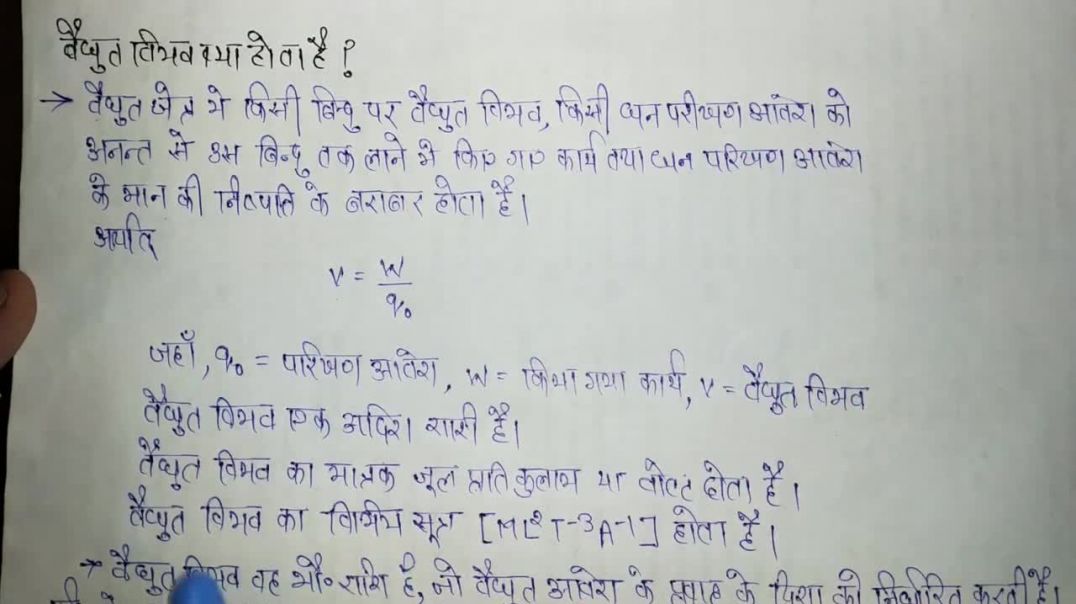 वैद्युत विभव क्या होता है ?
→ वैद्युत क्षेत्र मे किसी बिन्दु पर वैद्युत विभव, किसी धन परीक्षण आवेश को
अनन्त से उस बिन्दु तक लाने मे किए गए कार्य तथा धन परिक्षण आवेश
के मान की निष्पत्ति के बराबर होता है।
अर्थात्
V = W/q₀
जहाँ, q₀ = परिक्षण आवेश, W = किया गया कार्य, V = वैद्युत विभव
वैद्युत विभव एक अदिश राशी है।
वैद्युत विभव का मात्रक जूल प्रति कुलाम या वोल्ट होता है।
वैद्युत विभव का विमिय सूत्र [ML²T-3A-1] होता है।
→ वैद्युत विभव वह भौ० राशि है, जो वैद्युत आवेश के प्रवाह के दिशा को निर्धारित करती है।